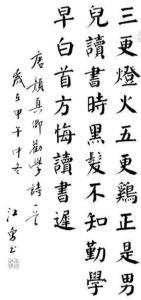 三更燈火五更鷄正是男
兒讀書時黑髮不知勤學
早白首方悔讀書遲
唐顏真卿勸學詩一首
歲在甲午中冬
江